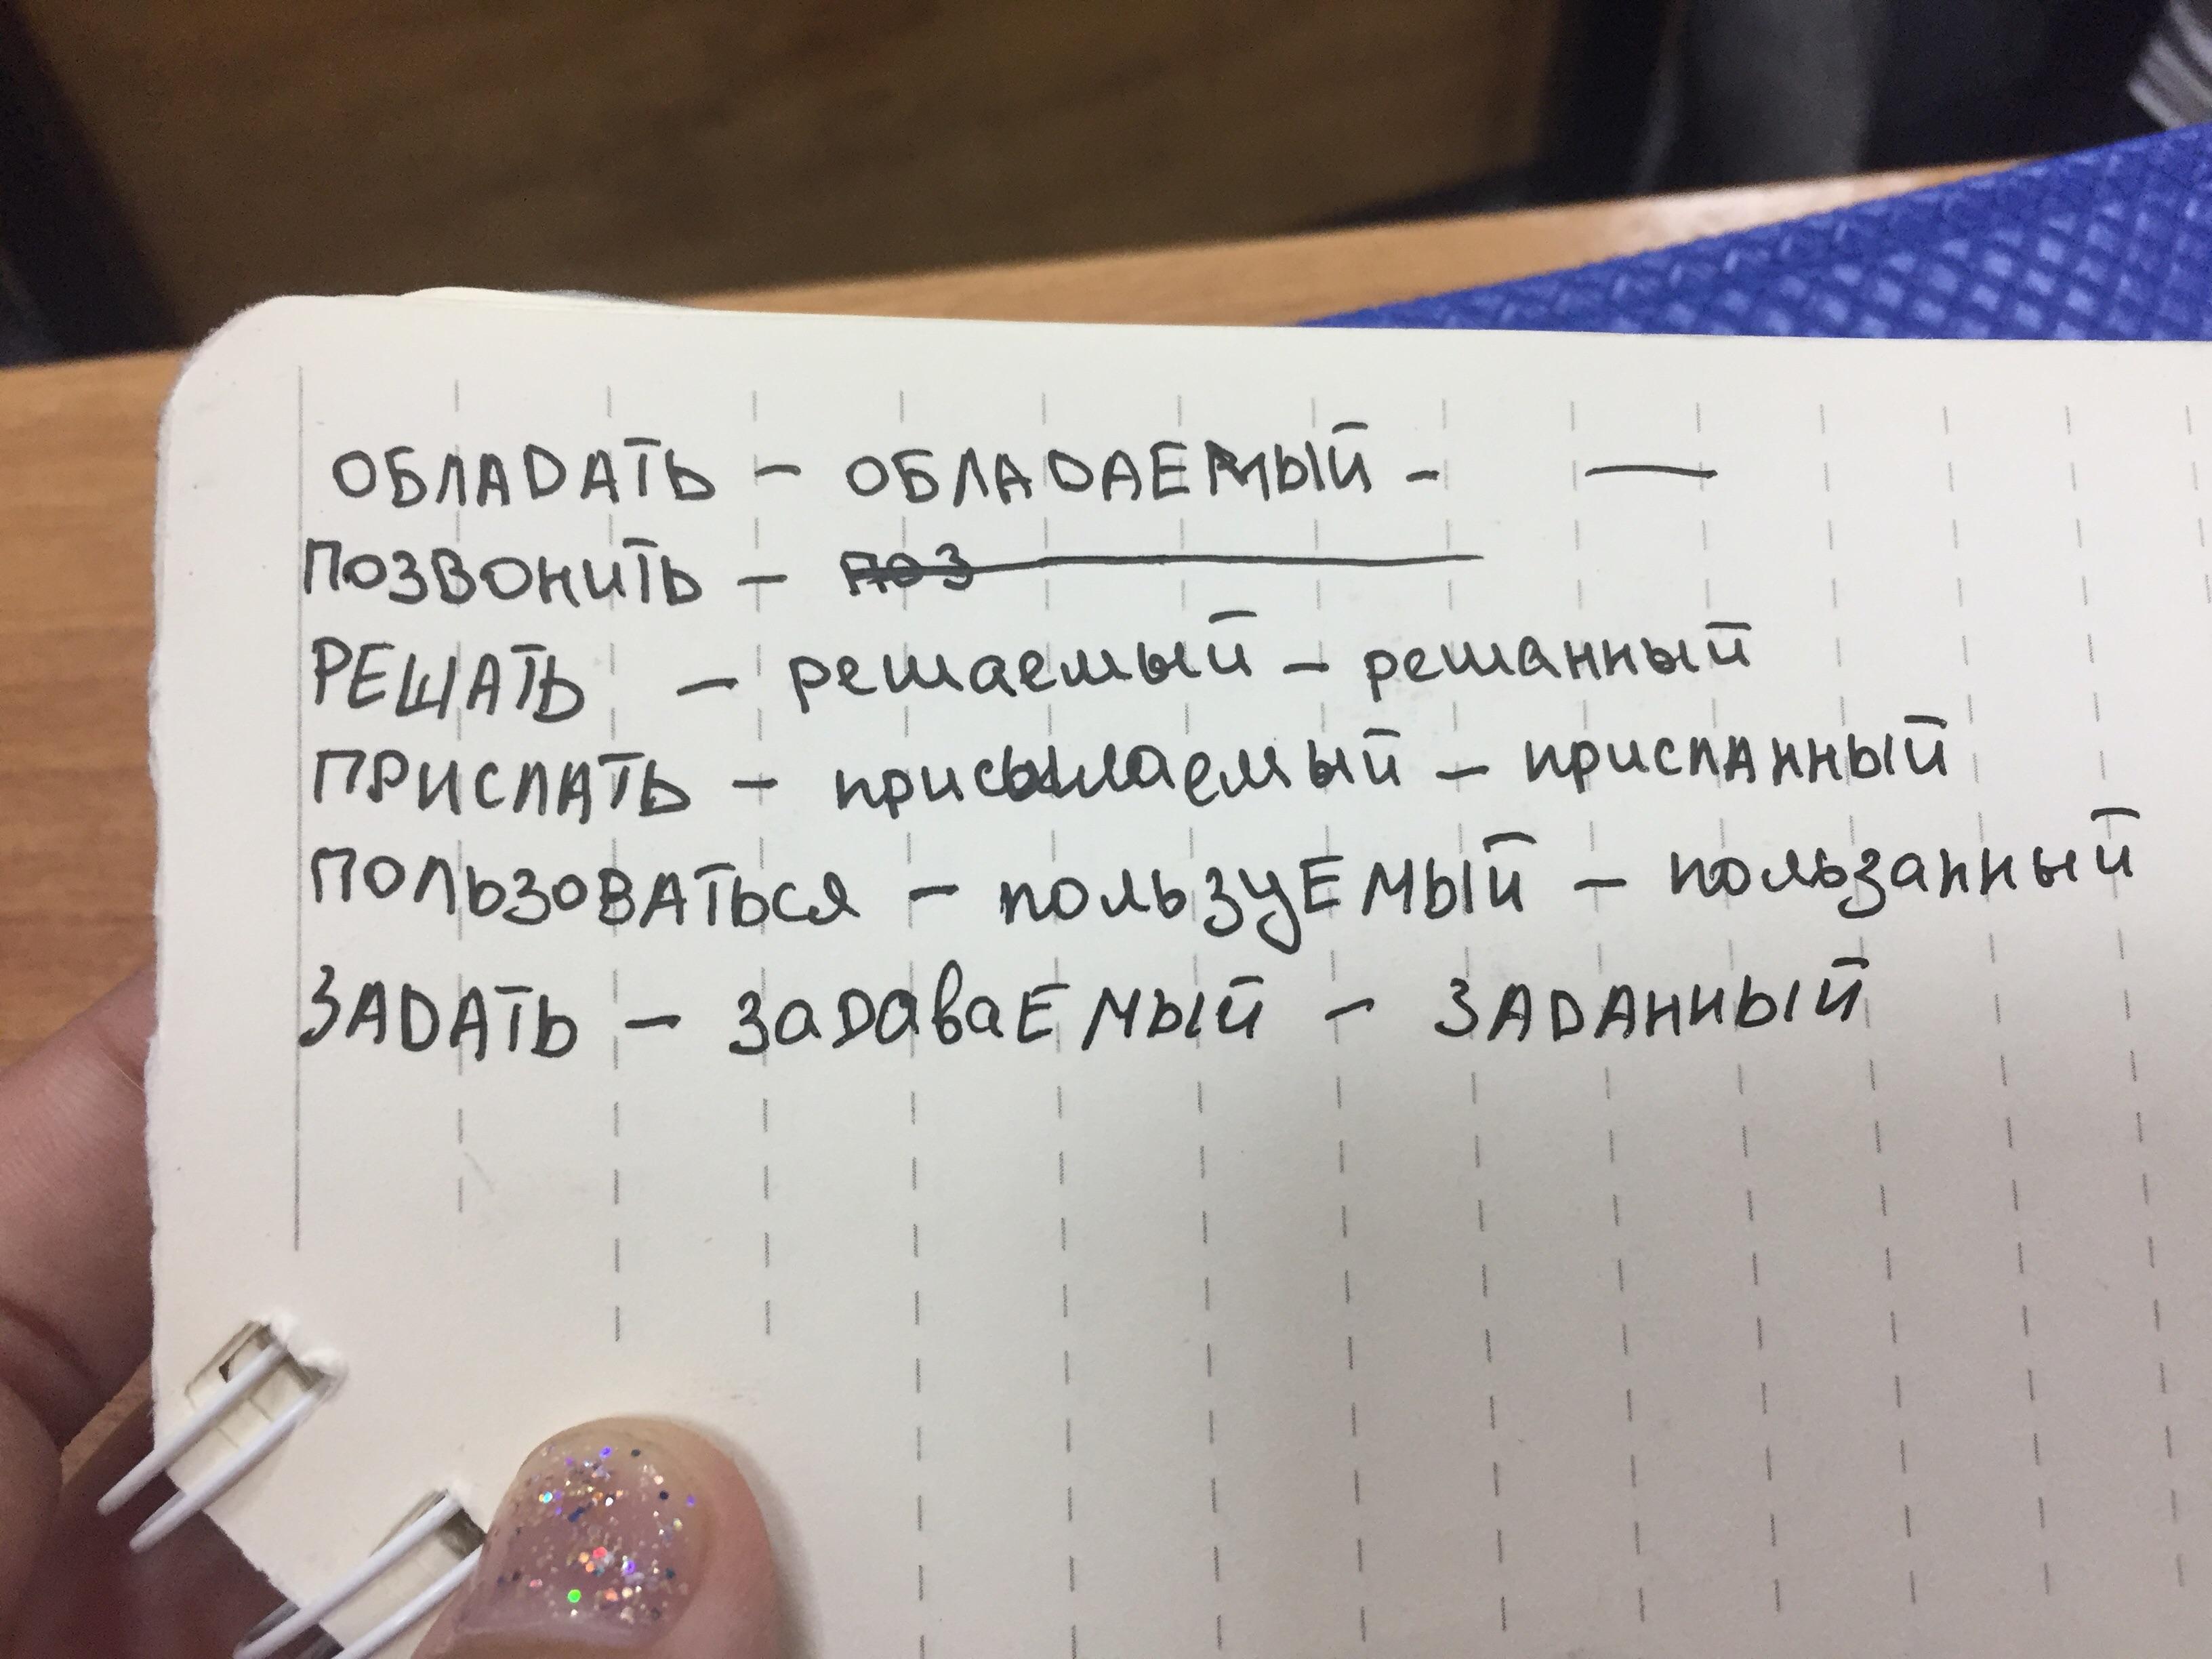 ОБЛАДАТЬ - ОБЛАДАЕМЫЙ - —
ПОЗВОНИТЬ - поз
РЕШАТЬ - решаемый - решанный
ПРИСЛАТЬ - присылаемый - присланный
ПОЛЬЗОВАТЬСЯ - пользуЕМЫЙ - пользанный
ЗАДАТЬ - задаваЕМЫЙ - ЗАДАННЫЙ